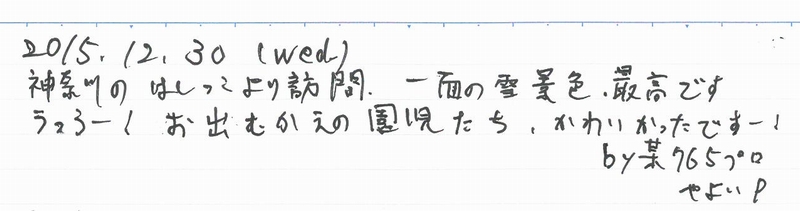 2015.12.30 (wed)
神奈川の はしっこより訪問. 一面の雪景色、最高です
うっうー！ お出むかえの園児たち、かわいかったですー！
by某765プロ
やよいP